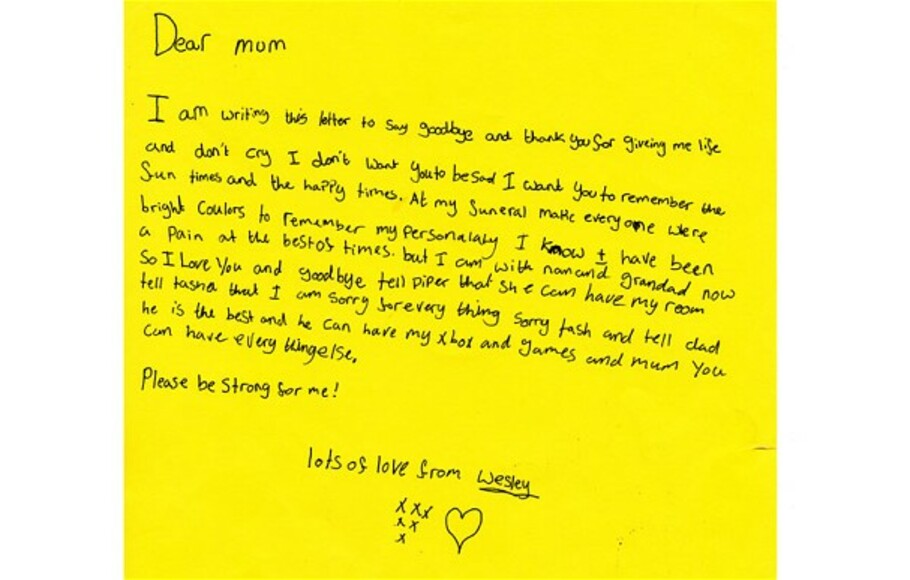 Dear mum
I am writing this letter to say goodbye and thank you for giveing me life
and don't cry I don't want you to be sad I want you to remember the
fun times and the happy times. At my funeral make everyone were
bright coulors to remember my personalaty I know I have been
a pain at the best of times. but I am with nan and grandad now
so I Love You and goodbye tell piper that she can have my room
tell tasha that I am sorry for every thing sorry tash and tell dad
he is the best and he can have my xbox and games and mum you
can have every thing else.
Please be strong for me!
lots of love from Wesley
x x x
x x
x